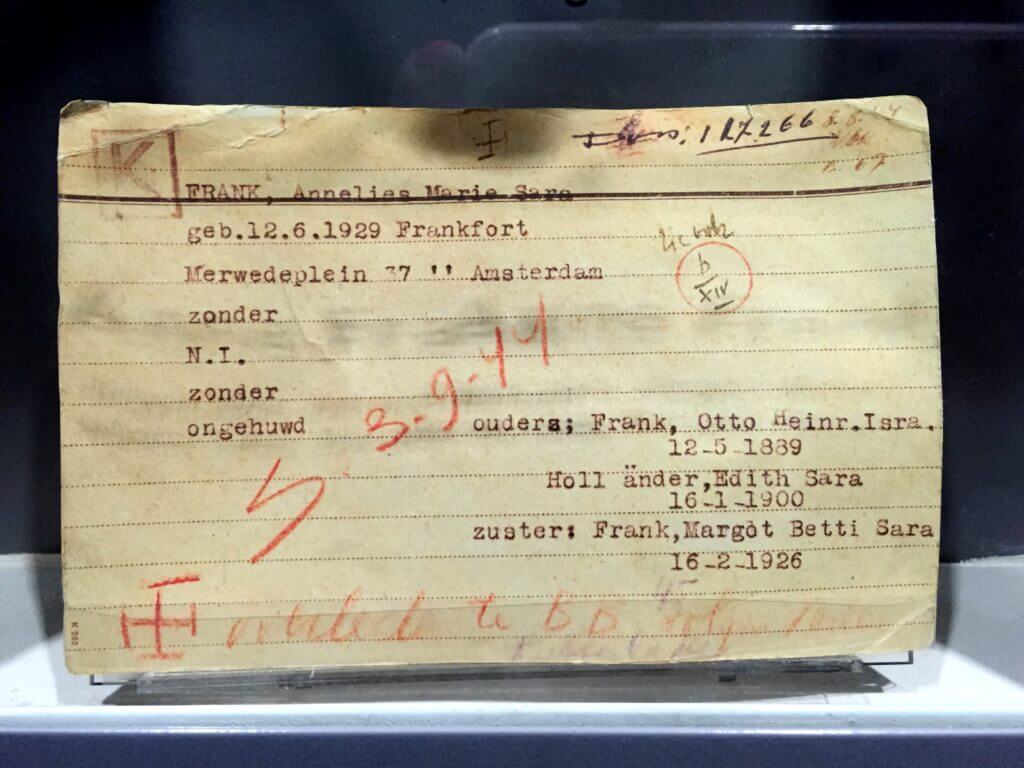 K
127266
FRANK, Annelies Marie Sara
geb.12.6.1929 Frankfort
Merwedeplein 37 '' Amsterdam
b
XIV
zonder
N.I.
zonder
3-9-44
ongehuwd ouders; Frank, Otto Heinr.Isra.
12-5-1889
Holl änder,Edith Sara
16-1-1900
zuster: Frank,Margot Betti Sara
16-2-1926
te BB
K 982